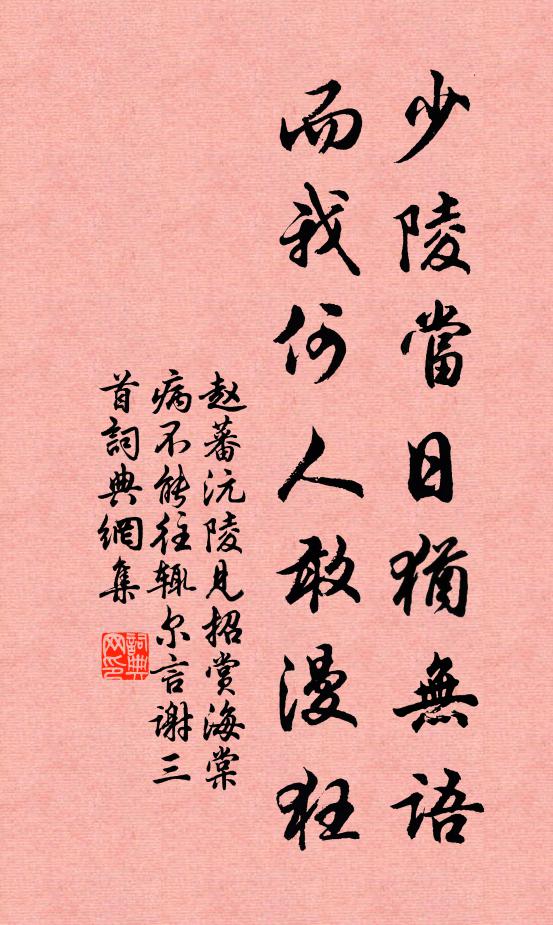 少陵當日猶無語
而我何人敢漫狂
赵蕃沅陵見招賞海棠
病不能往輒尔言謝三
首詞典網集
詞典網印